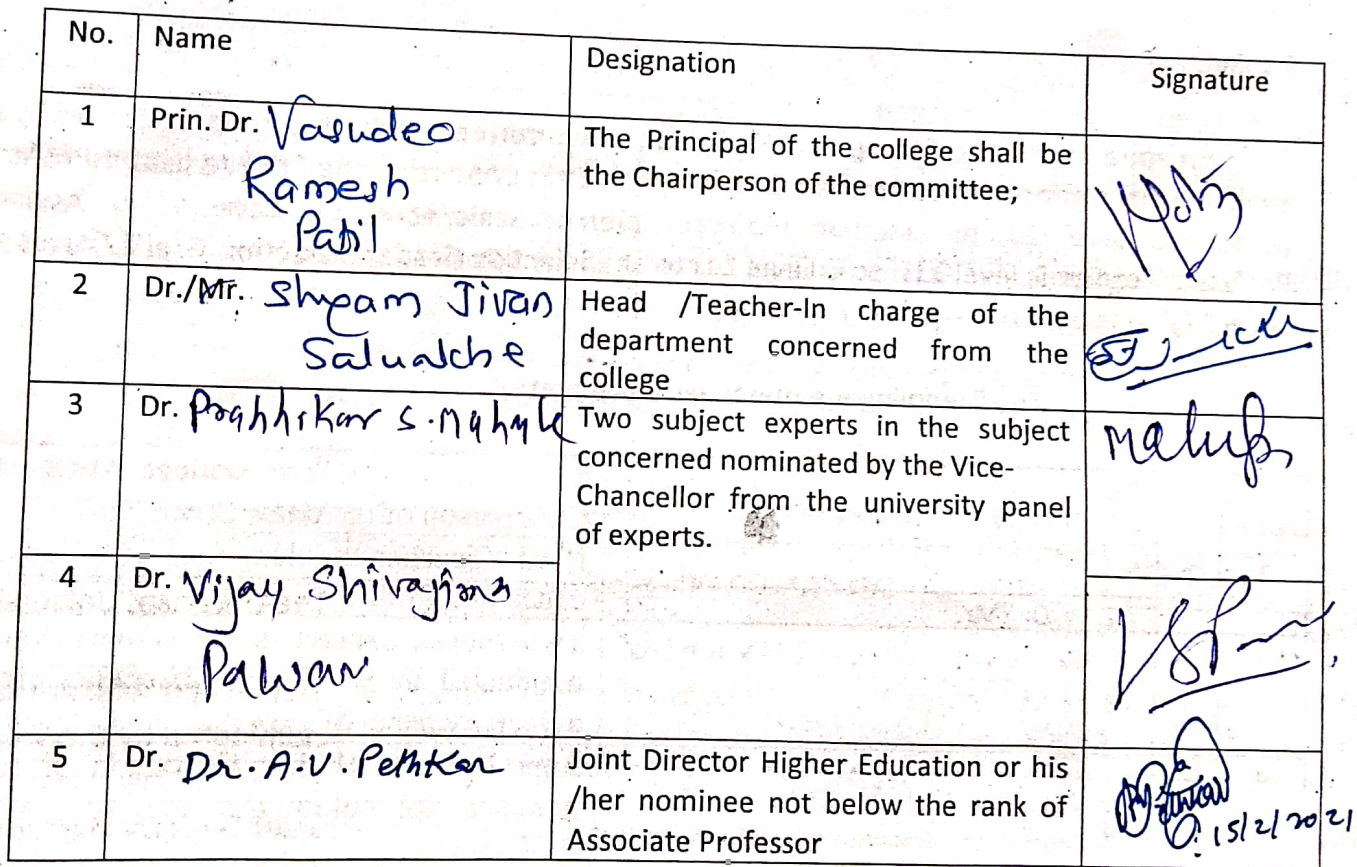 No. Name Designation Signature
1 Prin. Dr. Vasudeo
Ramesh
Patil
The Principal of the college shall be
the Chairperson of the committee;
2 Dr./Mr. Shyam Jivan
Salunkhe
Head /Teacher-In charge of the
department concerned from the
college
3 Dr. Prabhakar S. Mahule
Two subject experts in the subject
concerned nominated by the Vice-
Chancellor from the university panel
of experts.
4 Dr. Vijay Shivajirao
Pawar
5 Dr. Dr. A.V. Pethkar
Joint Director Higher Education or his
/her nominee not below the rank of
Associate Professor
15/2/2021